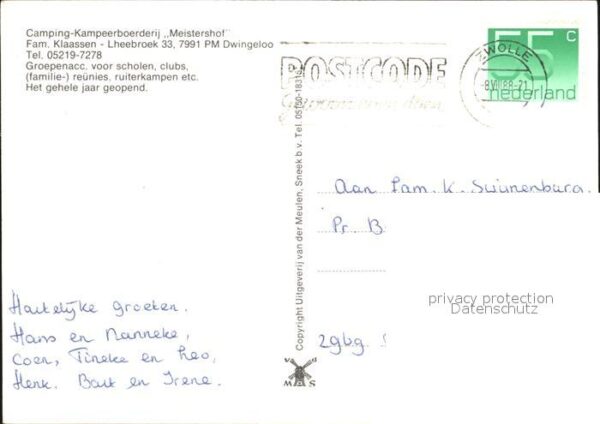 Camping-Kampeerboerderij „Meistershof”
Fam. Klaassen - Lheebroek 33, 7991 PM Dwingeloo
Tel. 05219-7278
Groepenacc. voor scholen, clubs,
(familie-) reünies, ruiterkampen etc.
Het gehele jaar geopend.
POSTCODE
Gewoon even doen
ZWOLLE
-8VII88-21
55 c
nederland
Copyright Uitgeverij van der Meulen, Sneek b.v. Tel. 05150-18319
Aan Fam. K. Swijnenburg.
Pr. B
privacy protection
Datenschutz
Hartelijke groeten.
Hans en Nanneke,
Coen, Tineke en Leo,
Henk. Bart en Irene.